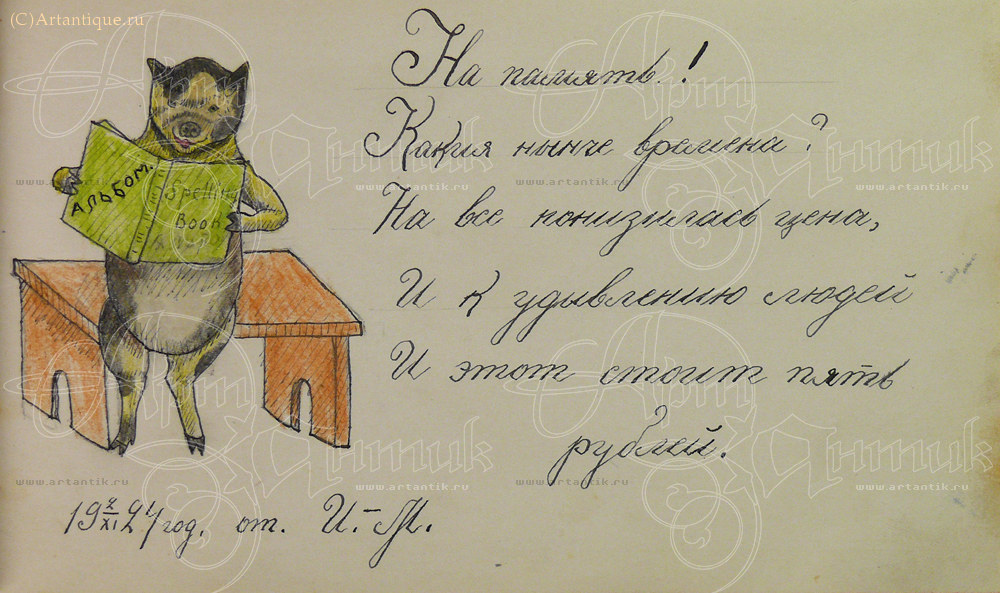 (C)Artantique.ru
На память!
Какия нынче времена?
На все понизилась цена,
И к удивлению людей
И этот стоит пять
рублей.
АЛЬБОМ.
Spelling
Book
19 2/XI 24 год. от. И.-М.
Арт Антик
www.artantik.ru